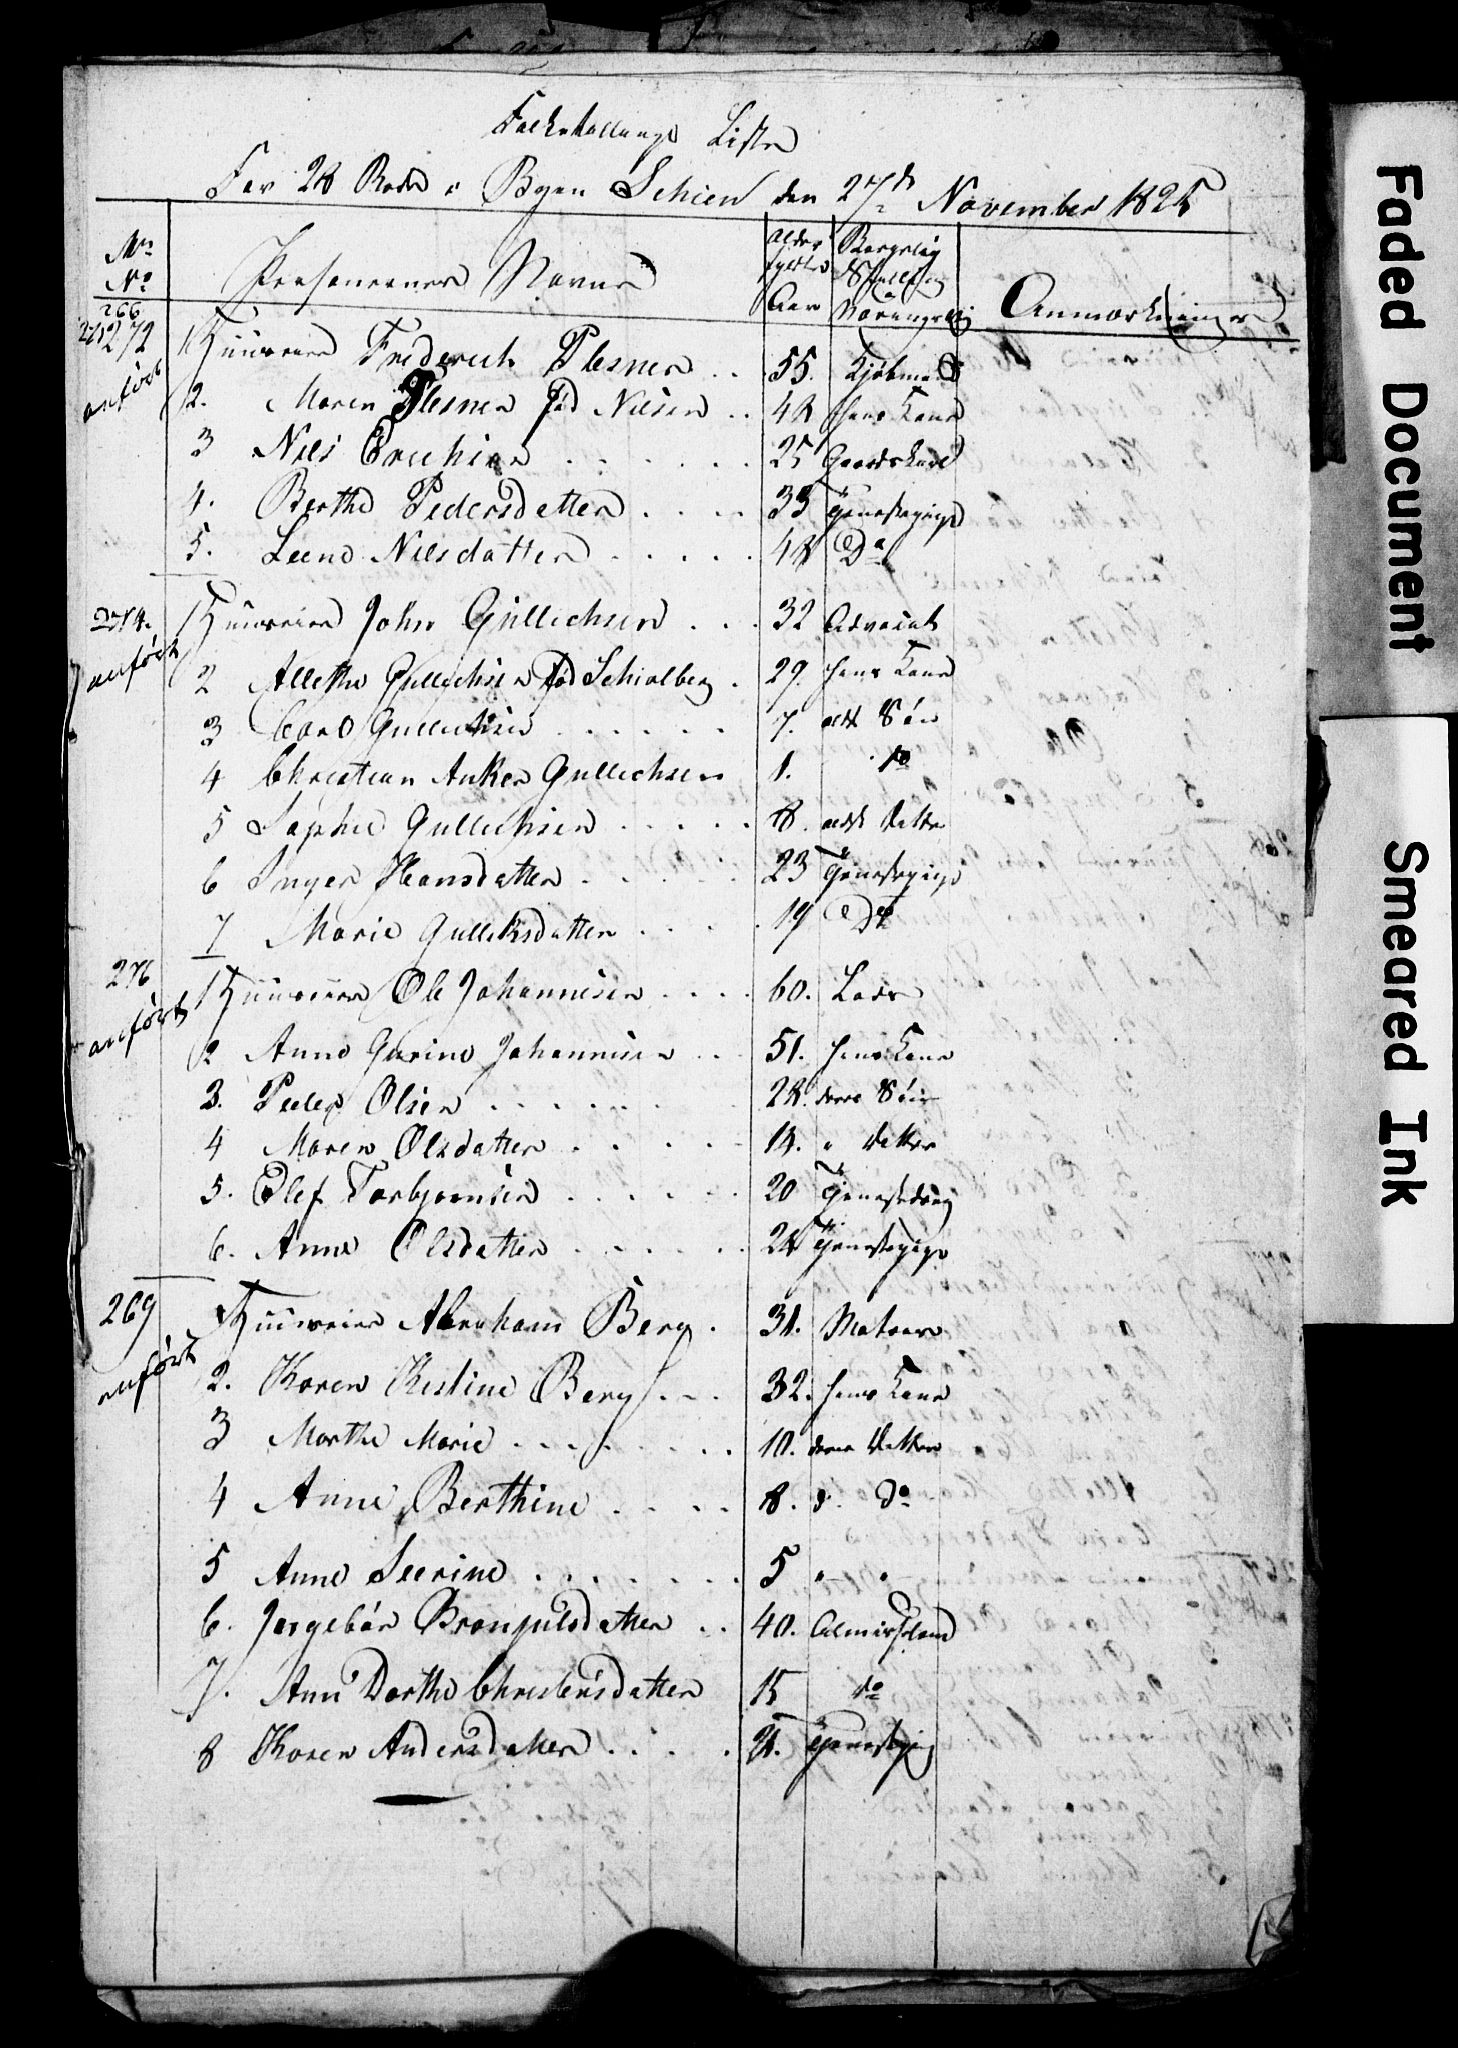 Folketallings Liste
For 28 Rode i Byen Schien den 27de November 1825
Mr No
Personernes Navne
Alder fyldte Aar
Borgerlig Stilling Næringsvei
Anmærkninger
266
271 272 anført
1 Huuseier Frederich Plesner . . 55. Kjøbmand
2. Maren Plesner fød Nilsen . . 48 hans Kone
3 Nils Erichsen . . . . . . 25 Gaardskarl
4. Berthe Pedersdatter . . . . 33 Tjenestepige
5. Leene Nilsdatter . . . . . 48 Do
274. anført
1 Huuseier John Gullichsen . . . 32 Advocat
2 Allethe Gullichsen fød Schialberg . 29. hans Kone
3 Carl Gullichsen . . . . . . 7. ægte Søn
4 Christian Anker Gullichsen 1. do
5 Sophie Gullichsen . . . . . 8. ægte Datter
6 Inger Hansdatter . . . . . 23 Tjenestepige
7 Marie Gulliksdatter . . . . 19 Do
276 anført
1 Huuseier Ole Johannisen . . . . 60. Lods
2 Anne Gurine Johannisen . . . 51. hans Kone
3. Peder Olsen . . . . . . . 28. deres Søn
4 Maren Olsdatter . . . . . 14. " Datter
5. Olef Torbjørnsen . . . . . . 20 Tjenestedreng
6. Anne Olsdatter . . . . . . 24 Tjenestepige
269 anført
1 Huuseier Abraham Berg . 31. Matros
2. Karen Kistine Berg . . . 32. hans Kone
3 Marthe Marie . . . . . . . . 10. deres Datter
4 Anne Berthine . . . . 8. d. do
5 Anne Seerine . . . . . . . 5 " "
6. Jørgebør Bronjulsdatter . . 40. Almislem
7. Ann Dorthe Christensdatter 15 do
8 Karen Andersdatter . . . . 21. Tjenestepige
Faded Document
Smeared Ink